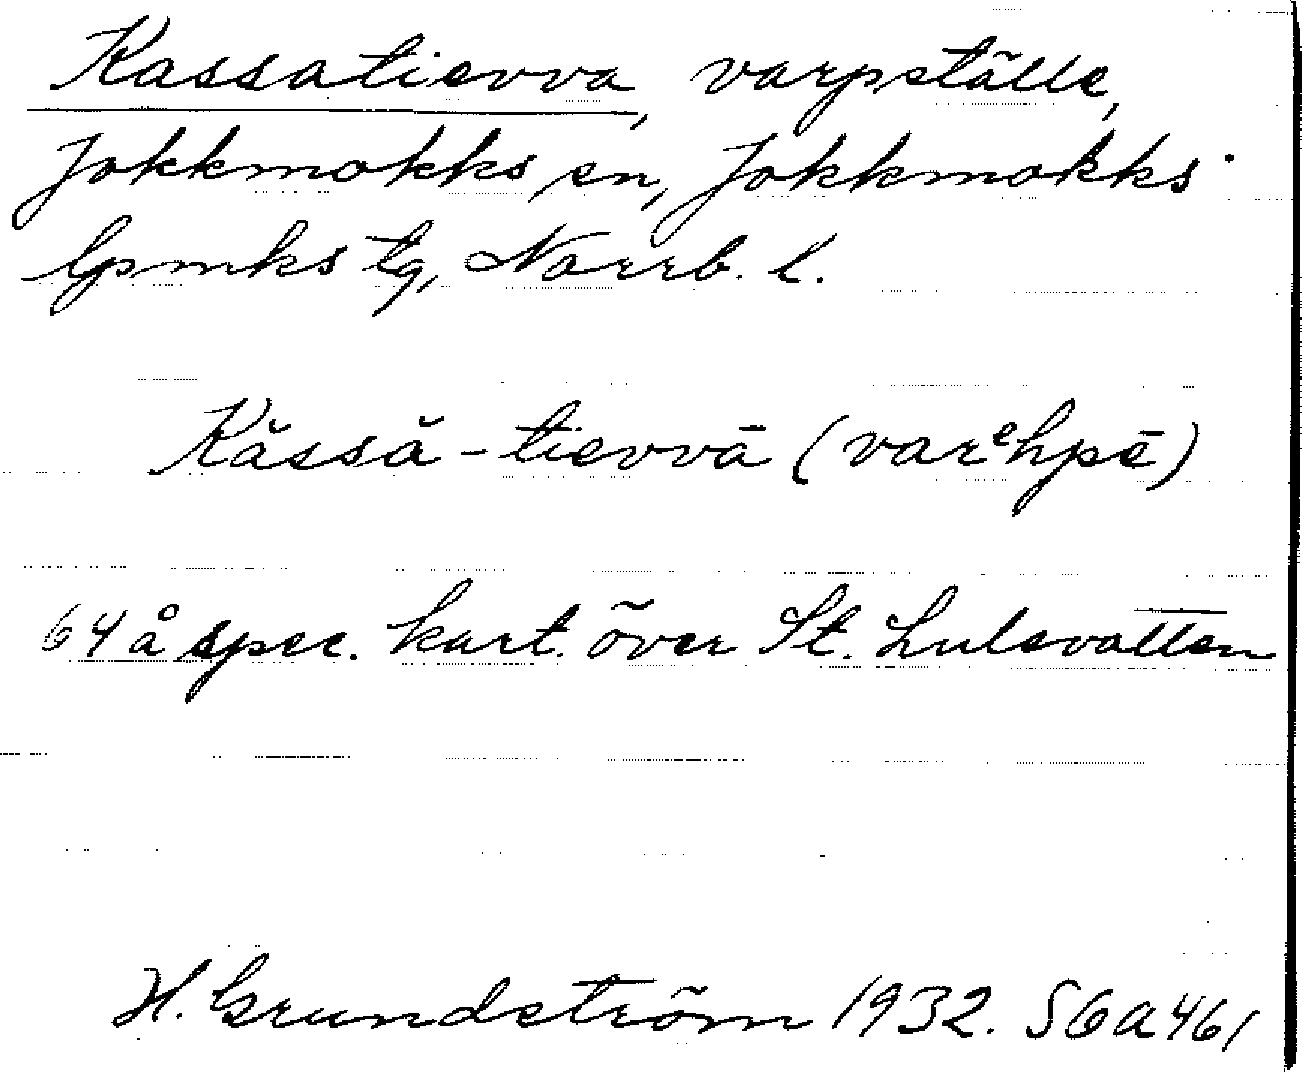 Kassatievva, varpställe,
Jokkmokks sn, Jokkmokks
lpmks tg, Norrb. l.
Kăssă-tievvā (varᵉhpē)
64 å spec. kart. över St. Lulevatten
H. Grundström 1932. SGA461